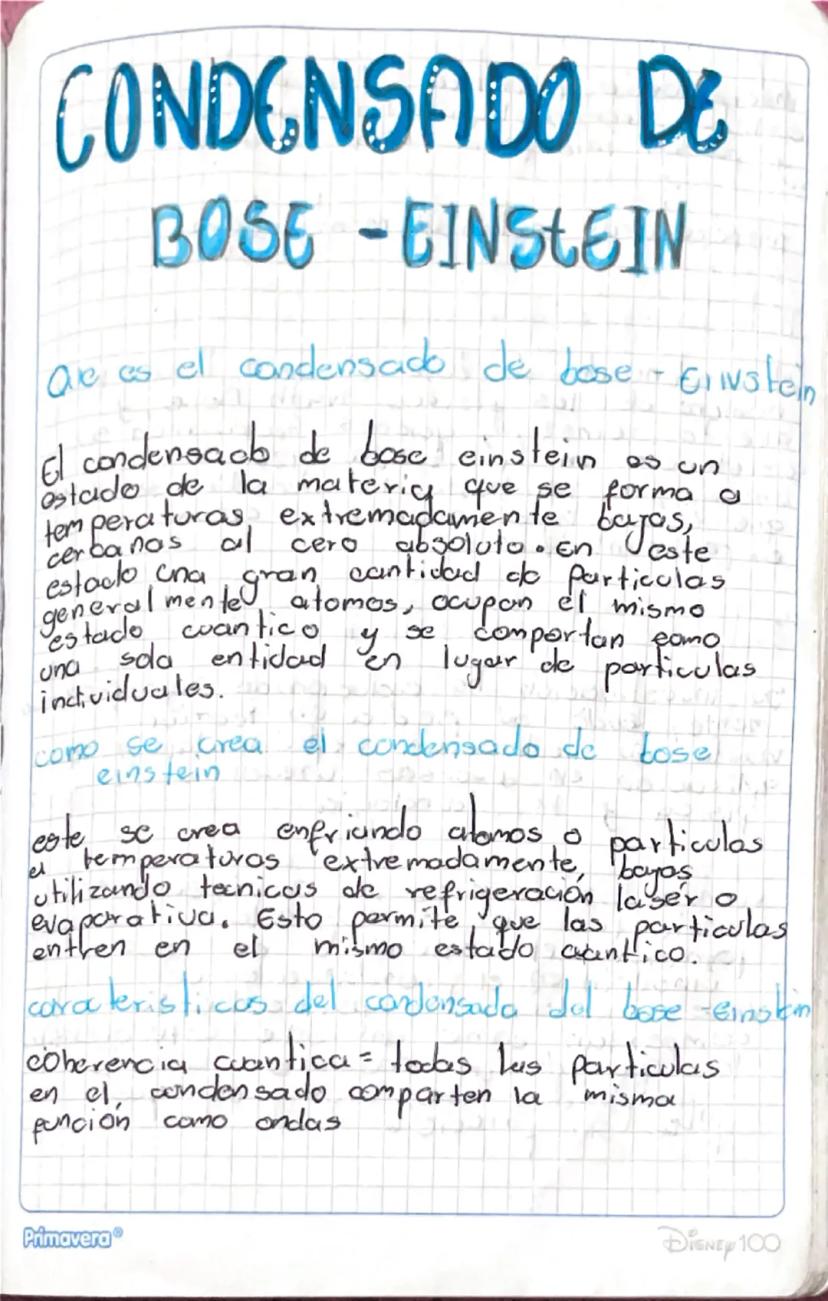 CONDENSADO DE
BOSE - EINSTEIN
Que es el condensado de bose - Einstein
El condensado de bose einstein es un
estado de la materia que se forma a
temperaturas extremadamente bajas,
cerbanas al cero absoluto. En este
estado una gran cantidad de particulas
generalmente atomos, ocupan el mismo
estado cuantico y se comportan como
una sola entidad en lugar de particulas
individuales.
como se crea el condensado de bose
einstein
este se crea enfriando atomos o particulas
a temperaturas extremadamente, bajas
utilizando tecnicas de refrigeración laser o
evaporativa. Esto permite que las particulas
entren en el mismo estado cuantico.
caracteristicas del condensado del bose-einstein
coherencia cuantica = todas las particulas
en el, condensado comparten la misma
función como ondas
Primavera®
Disney 100